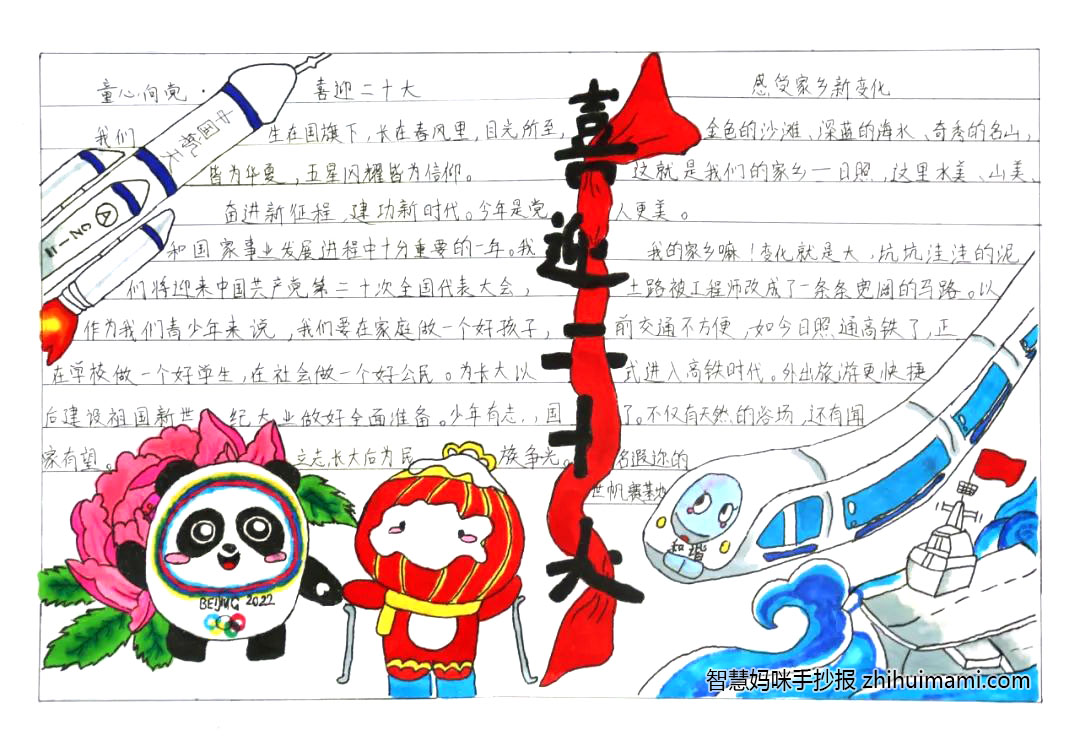 童心向党·喜迎二十大
我们生在国旗下,长在春风里,目光所至,
皆为华夏,五星闪耀皆为信仰。
奋进新征程,建功新时代。今年是党
和国家事业发展进程中十分重要的一年。我
们将迎来中国共产党第二十次全国代表大会,
作为我们青少年来说,我们要在家庭做一个好孩子,
在学校做一个好学生,在社会做一个好公民。为长大以
后建设祖国新世纪大业做好全面准备。少年有志,国
家有望。立志长大后为民族争光。
中国航天
CZ-
喜迎二十大
感受家乡新变化
金色的沙滩、深蓝的海水、奇秀的名山,
这就是我们的家乡一日照,这里水美、山美、
人更美。
我的家乡嘛!变化就是大,坑坑洼洼的泥
土路被工程师改成了一条条宽阔的马路。以
前交通不方便,如今日照通高铁了,正
式进入高铁时代。外出旅游更快捷
了。不仅有天然的浴场,还有闻
名遐迩的
世帆赛基地
和谐
BEIJING 2022
智慧妈咪手抄报 zhihuimami.com